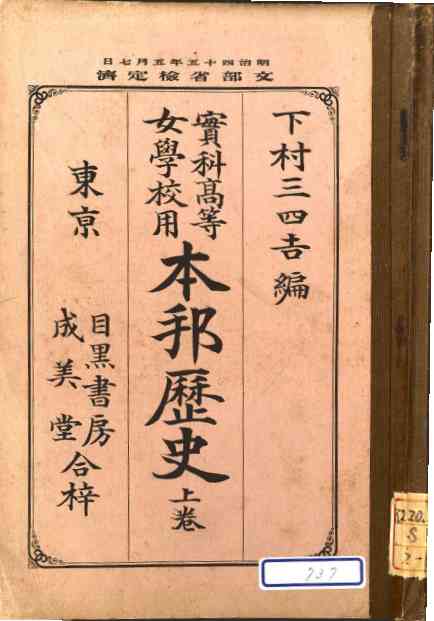 明治四十五年五月七日
文部省檢定濟
下村三四吉編
實科高等
女學校用
本邦歷史上卷
東京
目黑書房
成美堂
合梓
220.
S
737